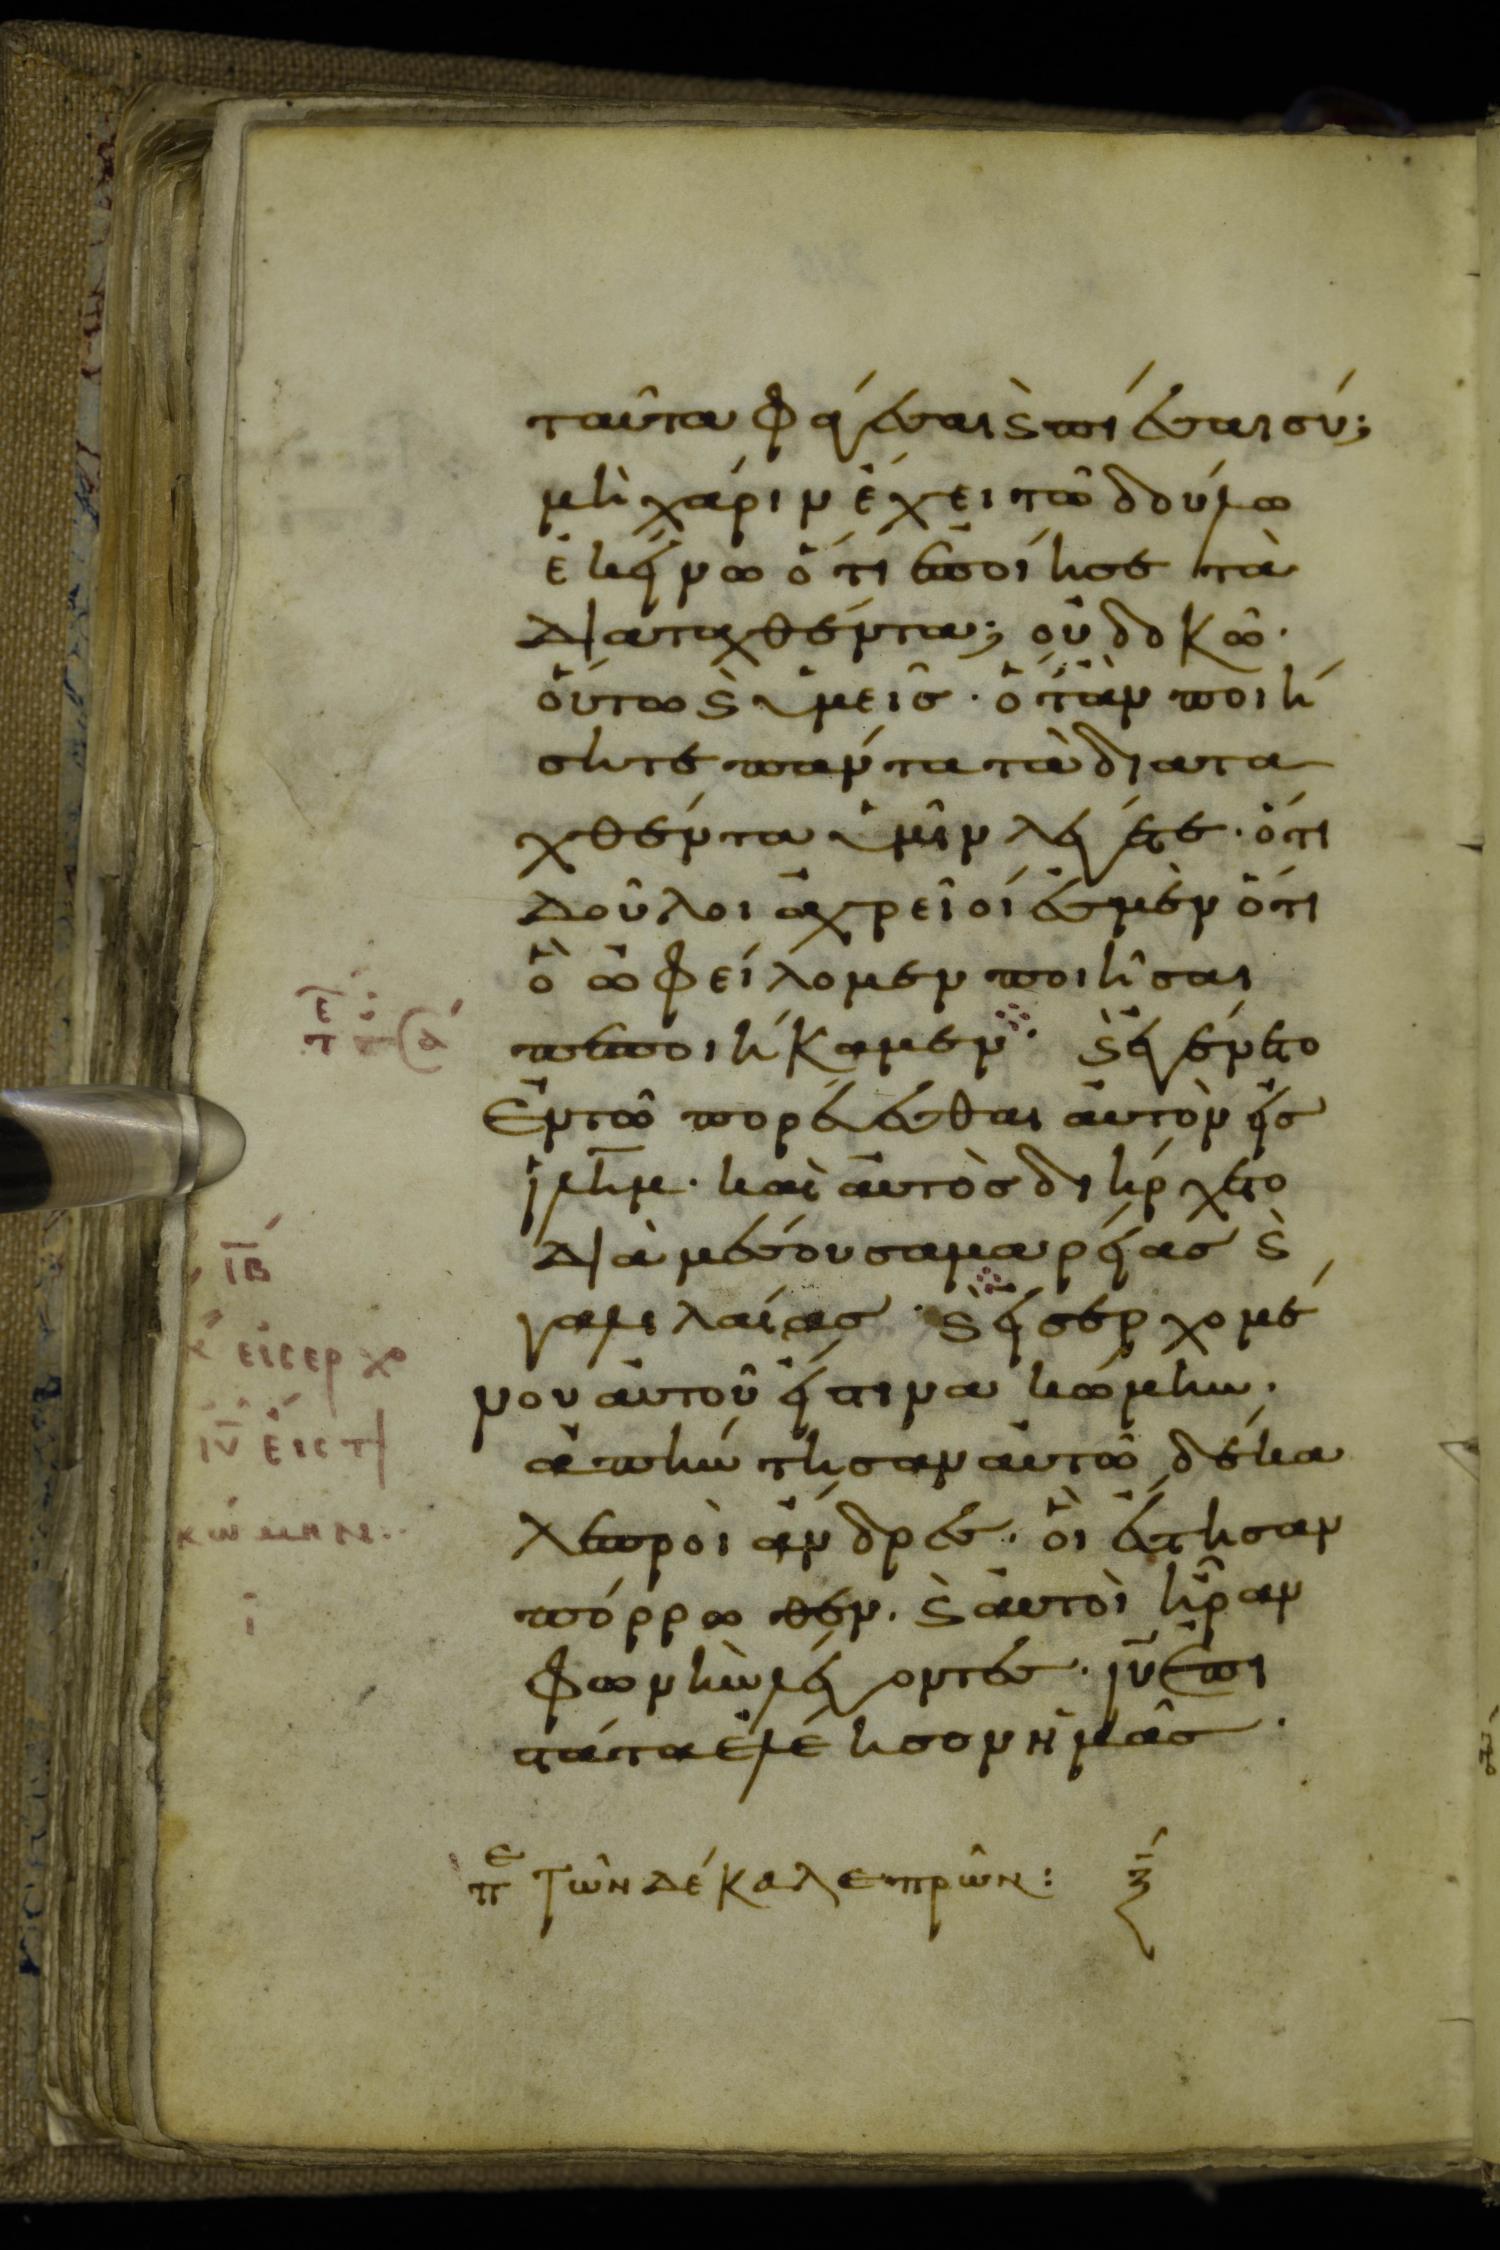 ταῦτα φάγεσαι ϗ πίεσαι σύ;
μὴ χάριν ἔχει τῶ δούλω
ἐκείνω ὅτι ἐποίησε τὰ
διαταχθέντα; οὐ δοκῶ·
οὕτω ϗ ὑμεῖς· ὅταν ποιή
σητε πάντα τὰ διατα
χθέντα ὑμῖν λέγετε· ὅτι
δοῦλοι ἀχρεῖοί ἐσμὲν ὅτι
ὃ ὠφείλομεν ποιῆσαι
πεποιήκαμεν· ϗ ἐγένετο
ἐν τῶ πορεύεσθαι αὐτὸν εἰς
ιλημ· καὶ αὐτὸς διήρχετο
διὰ μέσου σαμαρείας ϗ
γαλιλαίας· ϗ εἰσερχομέ
νου αὐτοῦ εἴς τινα κώμην·
ἀπήντησαν αὐτῶ δέκα
λεπροὶ ἄνδρες· οἳ ἔστησαν
πόρρωθεν· ϗ αὐτοὶ ἦραν
φωνὴν λέγοντες· ιυ ἐπι
στάτα ἐλέησον ἡμᾶς·
ΙΒ
εἰσερχο
ιυ εἰς τι
κώμην
πε τῶν δέκα λεπρῶν: ξ